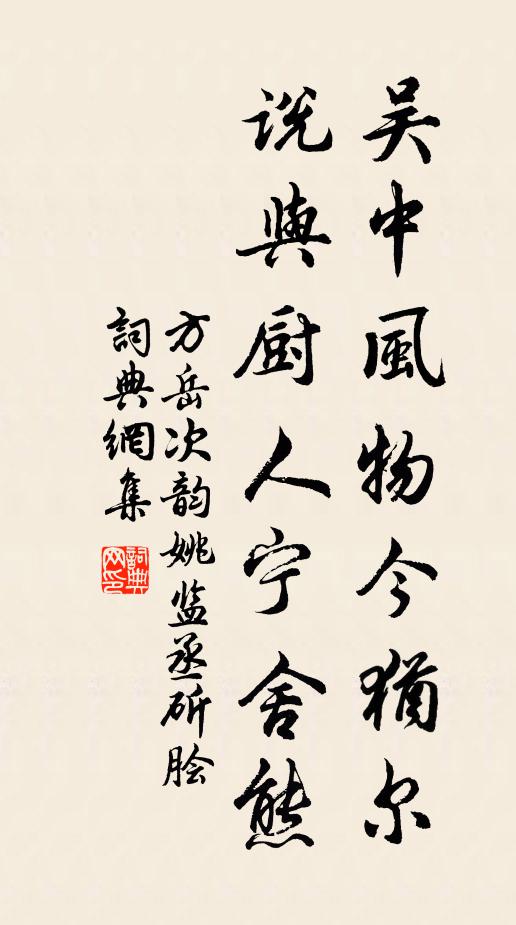 吴中風物今猶尔
説與厨人宁舍熊
方岳次韵姚监丞斫脍
詞典網集
詞典网印